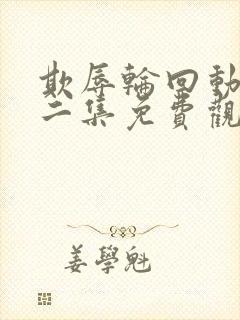 欺辱輪回動
二集免費觀
姜學魁